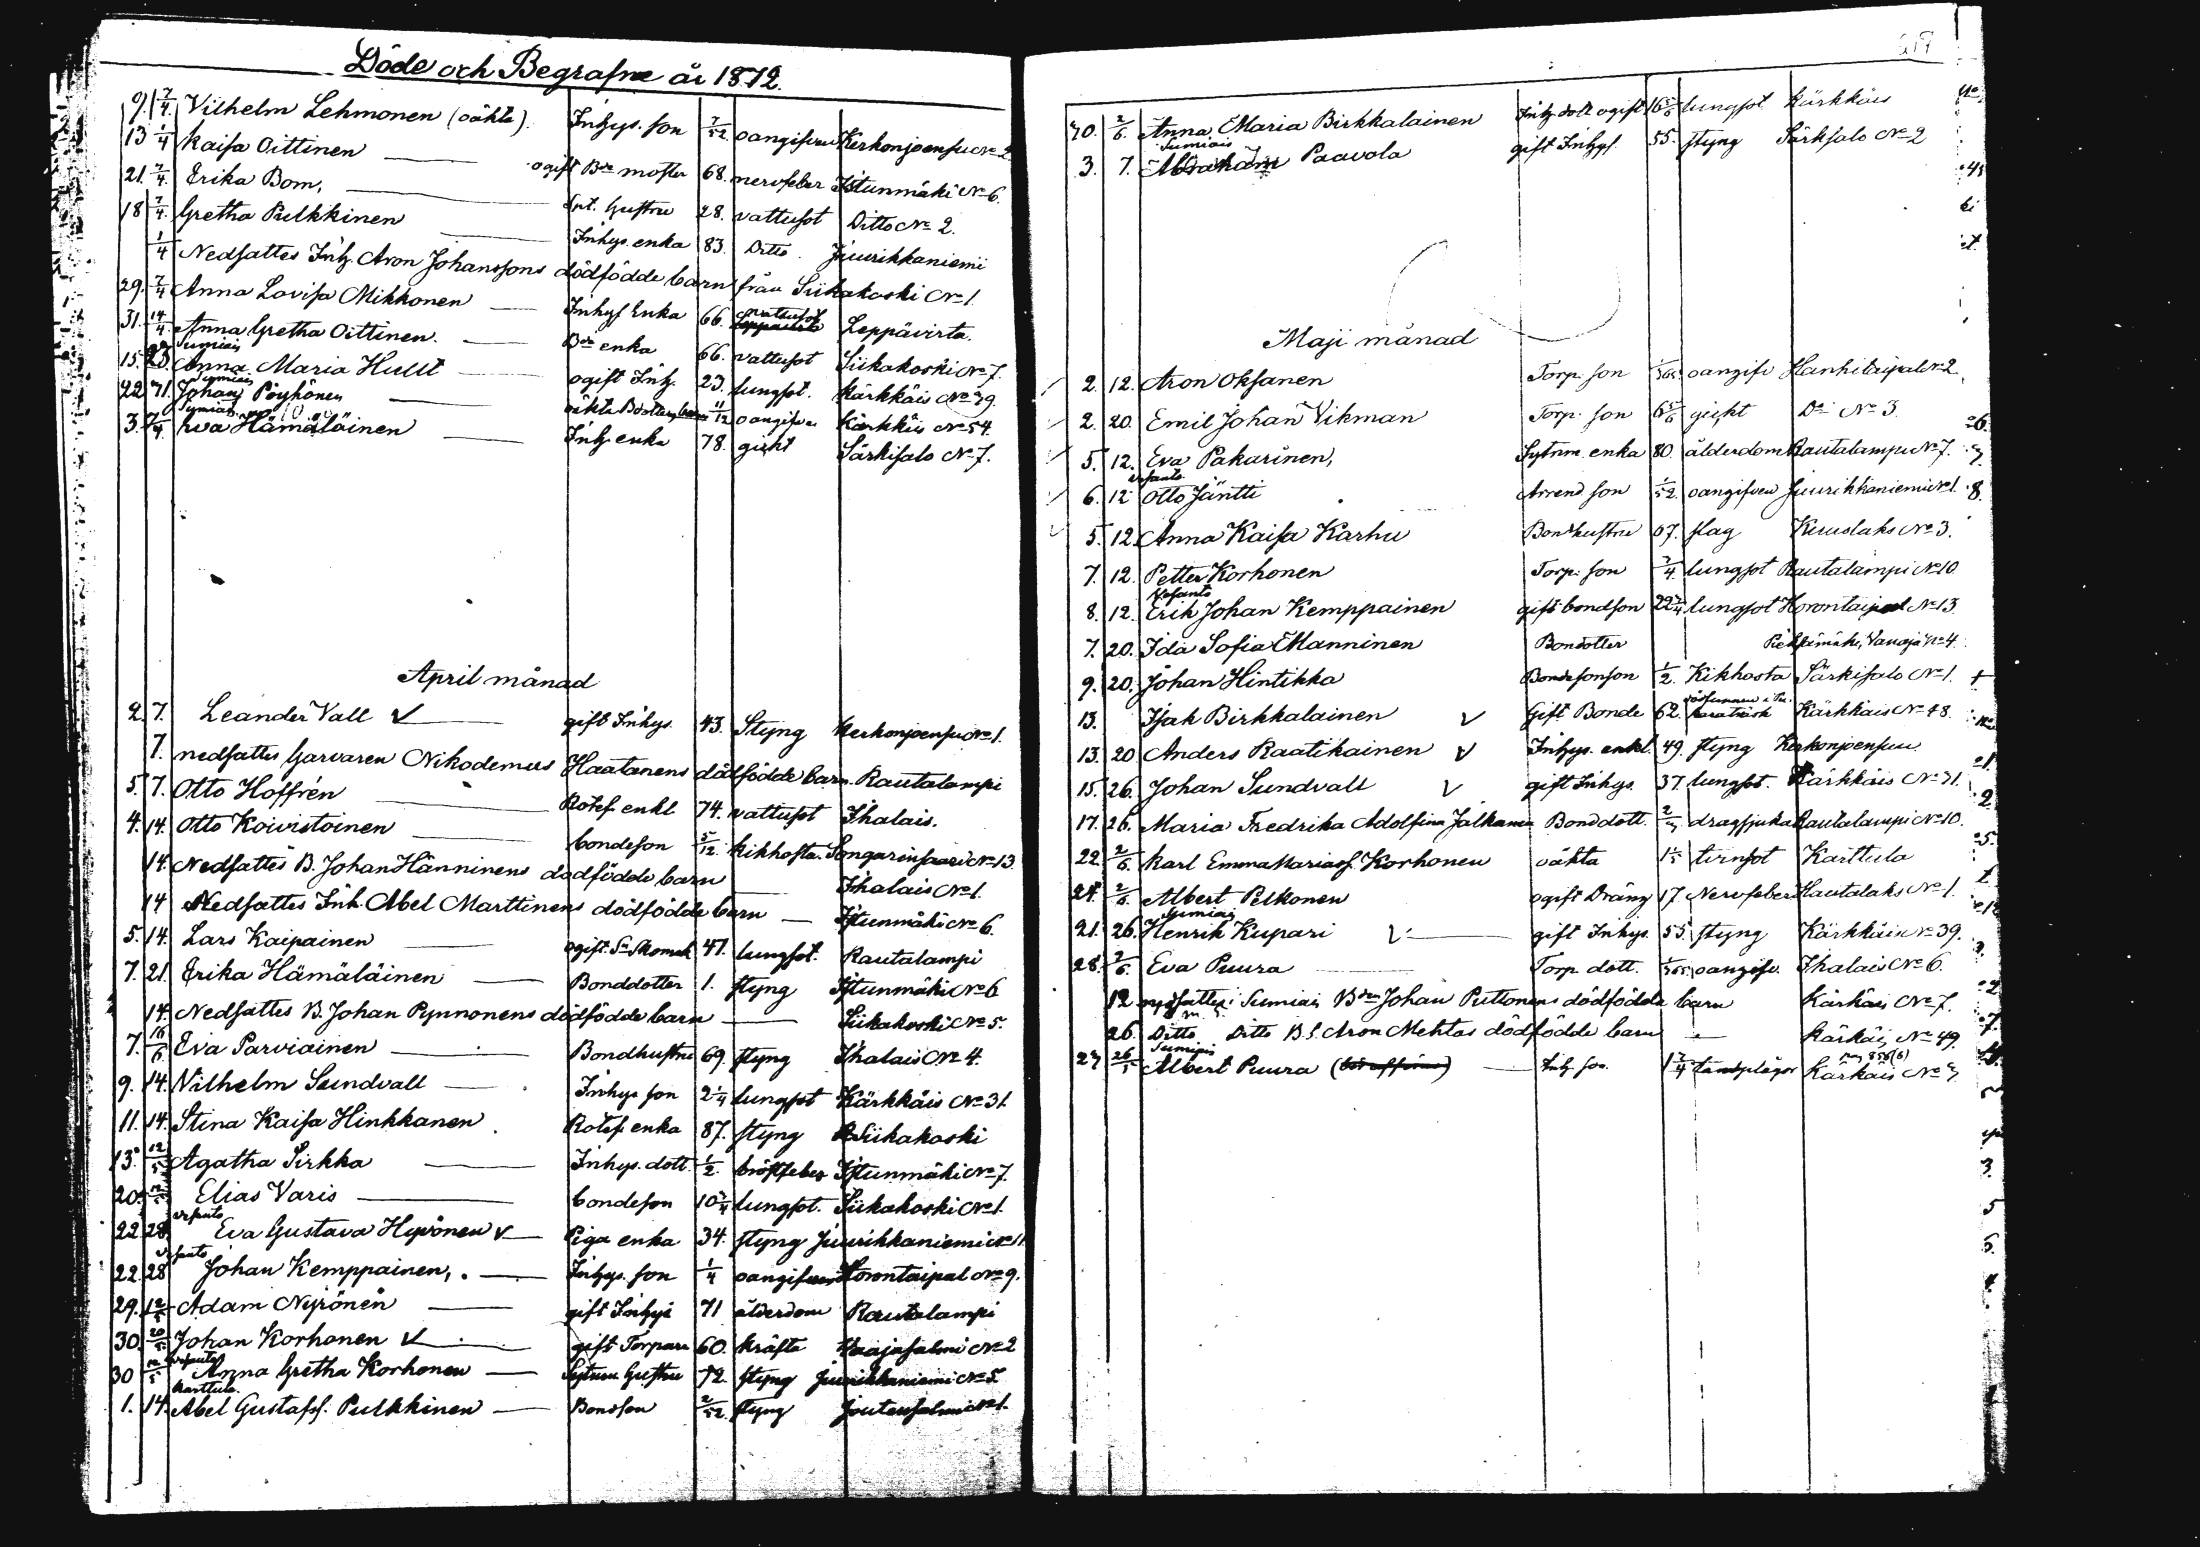 Döde och Begrafne år 1872.
9. 7/4 Vilhelm Lehmonen (oäkta). Inhys. son 7/52 oangifven Kerkonjoensu No 2
13 1/4 Kaisa Oittinen — ogift Bde moster 68. nervfeber Istunmäki No 6.
21. 7/4. Erika Bom, — hustru 28. vattusot Ditto No 2.
18 7/4. Gretha Pulkkinen — Inhys. enka 83. Ditto Juurikkaniemi
1/4 Nedsattes Inh. Aron Johanssons dödfödde barn från Siikakoski No 1
29. 7/4 Anna Lovisa Mikkonen — Inhys Enka 66. vattusot Leppävirta.
31. 14/4. Anna Gretha Oittinen. — Bde enka 66. vattusot Siikakoski No 7.
Sumiais
15. 23. Anna Maria Hullt — ogift Inh. 23. lungsot. Kärkkäis No 39
Sumiais
22 71. Johan Pöyhönen — 11/12 oangifven Kärkkäis No 54.
Sumiais
3. 7/4 Eva Hämäläinen — Inh. enka 78. gickt Särkisalo No 7.
April månad
2. 7. Leander Vall — gift Inhys. 43. Styng Kerkonjoensu No 1.
7. nedsattes Garvaren Nikodemus Haatanens dödfödde barn. Rautalampi
5. 7. Otto Hoffrén — Rotef. enkl 74. vattusot Ihalais.
4. 14. Otto Koivistoinen — bondeson 5/12. kikhosta. Songarinsaari No 13
14. Nedsattes B. Johan Hänninens dödfödde barn — Ihalais No 1.
14 Nedsattes Inh. Abel Marttinens dödfödde barn — Istunmäki No 6.
5. 14. Lars Kaipainen — ogift 47. lungsot. Rautalampi
7. 21. Erika Hämäläinen — Bonddotter 1. styng Istunmäki No 6
14. Nedsattes B. Johan Pynnonens dödfödde barn — Siikakoski No 5.
7. 16/6 Eva Parviainen — Bondhustru 69. styng Ihalais No 4.
9. 14. Vilhelm Sundvall — Inhys son 2 1/4 lungsot Kärkkäis No 31.
11. 14. Stina Kaisa Hinkkanen. Rotef. enka 87. styng Siikakoski
13. 12/5 Agatha Sirkka — Inhys. dott. 1/2. bröstfeber Istunmäki No 7.
20. 12/5 Elias Varis — bondeson 10 3/4 lungsot. Siikakoski No 1.
Vesanto
22 28. Eva Gustava Hyvönen — Piga enka 34. styng Juurikkaniemi No 11
Vesanto
22. 28 Johan Kemppainen, — Inhys. son 1/4 oangifven Horontaipal No 9.
29. 12/5 Adam Nyrönen — gift Inhys 71 ålderdom Rautalampi
30. 20/5 Johan Korhonen — gift Torpare 60. kräfta Haajasalmi No 2
Vesanto
30 12/5 Anna Gretha Korhonen — Sytnm hustru 72. styng Juurikkaniemi No 5.
Karttula
1. 14. Abel Gustafss. Pulkkinen — Bondson 2/52. styng Joutensalmi No 1.
30. 2/6. Anna Maria Birkkalainen Inh. dott ogift 16 5/6 lungsot Kärkkäis
Sumiais
3. 7. Abraham Paavola gift Inhys. 55. styng Särkisalo No 2
Maji månad
2. 12. Aron Oksanen Torp. son 1/365. oangifv Hanhitaipal No 2
2. 20. Emil Johan Vikman Torp. son 6 5/6 gickt Do No 3.
5. 12. Eva Pakarinen, Sytnm. enka 80. ålderdom Rautalampi No 7.
Vesanto
6. 12 Otto Jäntti Arrend son 1/52. oangifven Juurikkaniemi No 1.
5. 12. Anna Kaisa Karhu Bondhustru 67. slag Kuuslaks No 3.
7. 12. Petter Korhonen Torp. son 3/4. lungsot Rautalampi No 10.
Vesanto
8. 12. Erik Johan Kemppainen gift bondson 22 3/4 lungsot Horontaipal No 13.
7. 20. Ida Sofia Manninen Bondotter Pieksämäki, Vanaja No 4.
9. 20. Johan Hintikka Bondesonson 1/2. Kikhosta Särkisalo No 1.
13. Isak Birkkalainen Gift Bonde 62. Kärkkäis No 48.
13. 20 Anders Raatikainen Inhys. enkl. 49. styng Kerkonjoensuu
15. 26. Johan Sundvall gift Inhys. 37. lungsot. Kärkkäis No 31.
17. 26. Maria Fredrika Adolfina Jalkanen Bonddott. dragsjuka Rautalampi No 10.
22. 2/6. Karl Emma Mariass. Korhonen oäkta 1 1/5 tvinsot Karttula
24. 2/6. Albert Pelkonen ogift Dräng 17. Nervfeber Hautalaks No 1.
Sumiais
21. 26. Henrik Kupari — gift Inhys. 55. styng Kärkkäis No 39.
28. 2/6. Eva Puura — Torp. dott. 1/365. oangifv. Ihalais No 6.
12 nedsattes i Sumiais Bden Johan Puttonens dödfödde barn Kärkäis No 7.
26. Ditto Ditto B.S. Aron Mehtos dödfödde barn — Kärkäis No 49.
Sumiais
27 26/5 Albert Puura — Inh. son. 1 3/4 tandplågor Kärkäis No 7